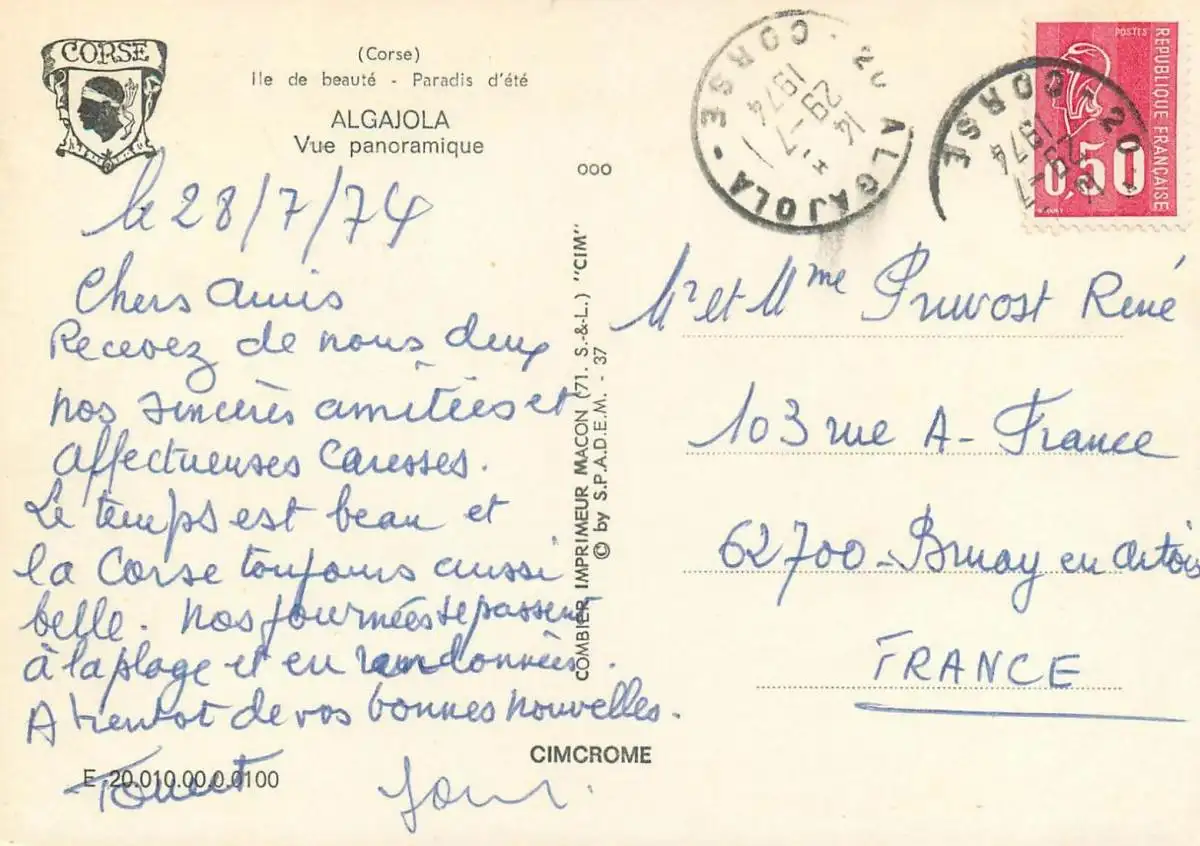 CORSE
(Corse)
Ile de beauté - Paradis d'été
ALGAJOLA
Vue panoramique
le 28/7/74
Chers amis
Recevez de nous deux
nos sincères amitiées et
affectueuses caresses.
Le temps est beau et
la Corse toujours aussi
belle. Nos journées se passent
à la plage et en randonnées.
A bientot de vos bonnes nouvelles.
E 20.010.00.0.0100
CIMCROME
ooo
COMBIER IMPRIMEUR MACON (71. S.-&-L.) "CIM"
© by S.P.A.D.E.M. - 37
20 ALGAJOLA - CORSE -
14 H
29-7
1974
20
CORSE
29-7
1974
POSTES
REPUBLIQUE FRANÇAISE
0,50
Mr et Mme Pruvost René
103 rue A- France
62700 - Bruay en artois
FRANCE